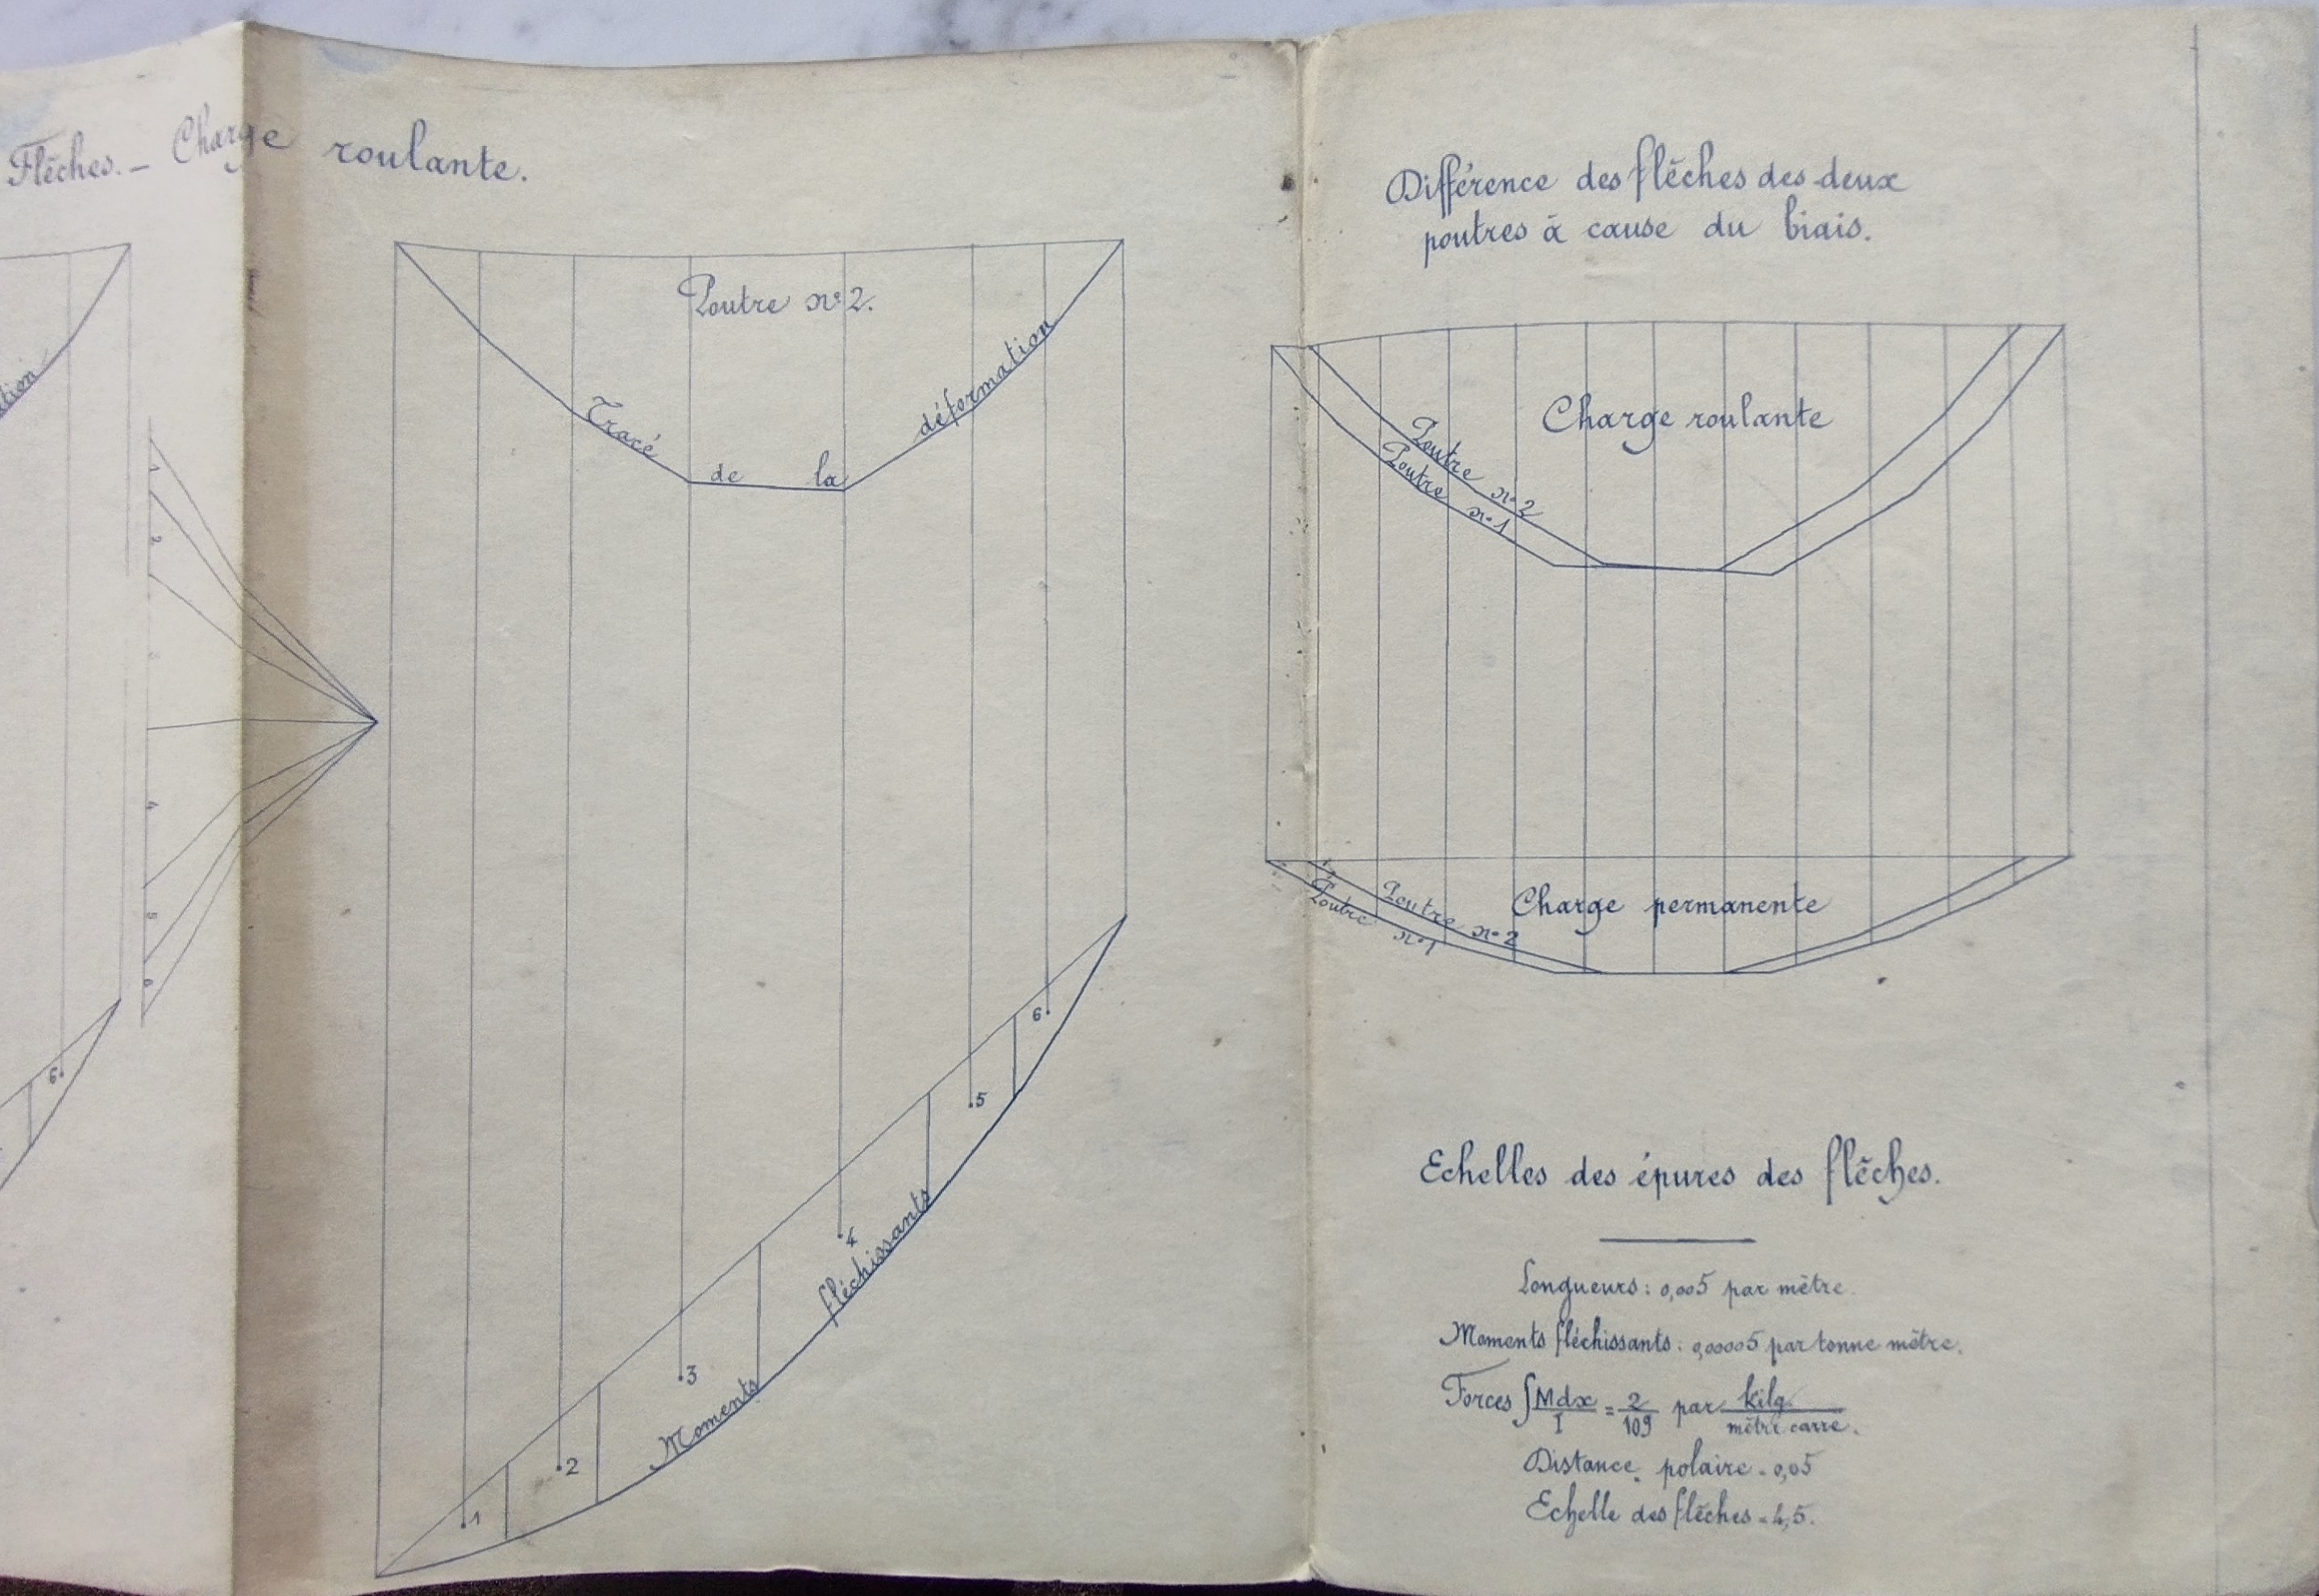 Flèches. - Charge roulante.
Poutre nº 2.
Tracé de la déformation
ation
1
2
4
5
6
6
1
2
3
4
5
6
Moments fléchissants
Différence des flèches des deux
poutres à cause du biais.
Charge roulante
Poutre nº 2
Poutre nº 1
Charge permanente
Poutre nº 2
Poutre nº 1
Echelles des épures des flèches.
Longueurs : 0,005 par mètre.
Moments fléchissants : 0,00005 par tonne mètre.
Forces ∫ Mdx/I = 2/10⁹ par kilg/mètre carré.
Distance polaire = 0,05
Echelle des flèches = 4,5.